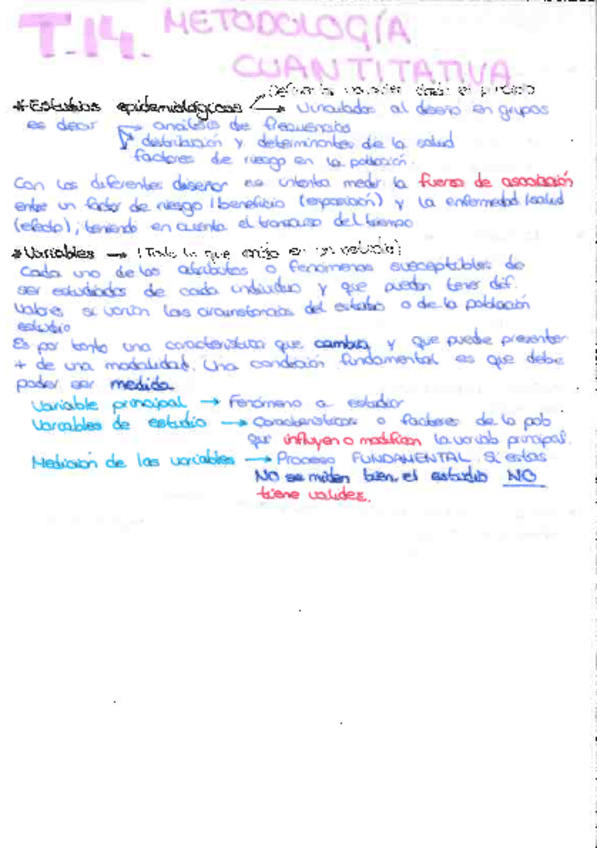 T.14. METODOLOGÍA
CUANTITATIVA
Definir las variables
*Estudios epidemiológicos → Vinculados al diseño en grupos
es decir → análisis de frecuencias
→ distribución y determinantes de la salud
factores de riesgo en la población.
Con los diferentes diseños se intenta medir la fuerza de asociación
entre un factor de riesgo/beneficio (exposición) y la enfermedad/salud
(efecto), teniendo en cuenta el transcurso del tiempo
*Variables → (Todo lo que en un estudio)
Cada uno de los atributos o fenómenos susceptibles de
ser estudiados de cada individuo y que puedan tener dif.
valores si varían las circunstancias del estudio o de la población
estudio
Es por tanto una característica que cambia y que puede presentar
+ de una modalidad. Una condición fundamental es que debe
poder ser medida
Variable principal → Fenómeno a estudiar
Variables de estudio → Características o factores de la pob
que influyen o modifican la variab principal.
Medición de las variables → Proceso FUNDAMENTAL. Si estas
NO se miden bien, el estudio NO
tiene validez.